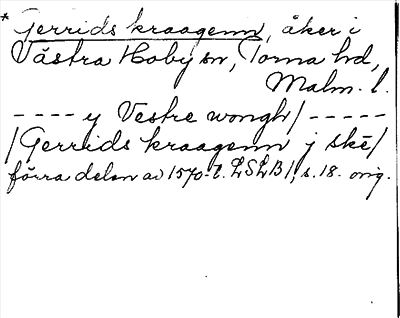 * Gerrids kraagenn, åker i
Västra Hoby sn, Torna hd,
Malm. l.
---- y Vestre wongh/ -----
/Gerrids kraagenn j skē/
förra delen av 1570-t. LSLB1, s. 18. orig.